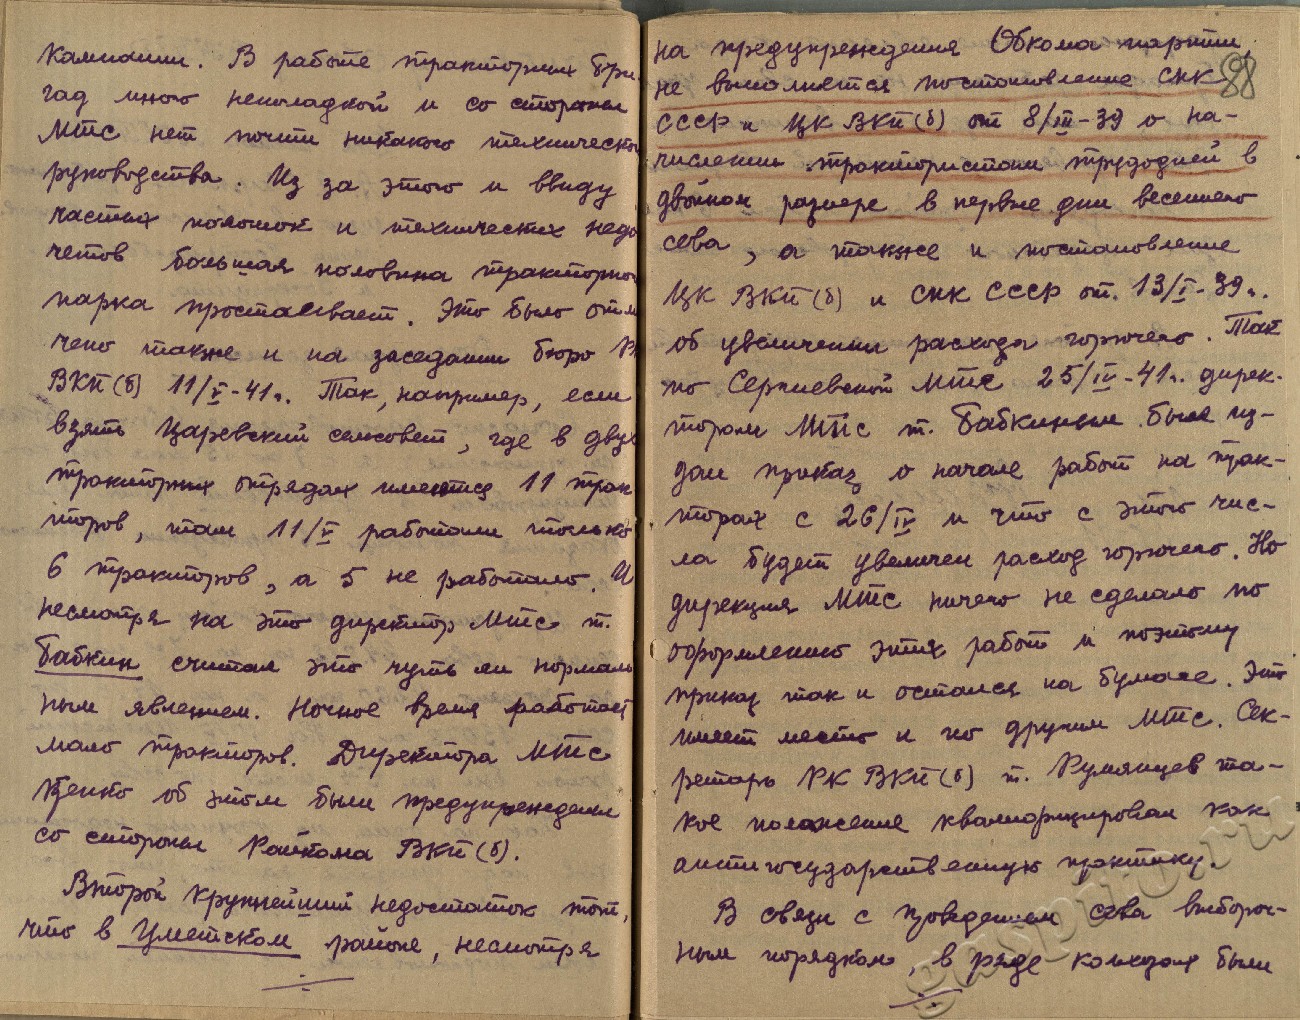 кампании. В работе тракторных бри-
гад много неполадкой и со стороны
МТС нет почти никакого техническо
руководства. Из за этого и ввиду
частых поломок и технических недо
четов большая половина тракторно
парка простаивает. Это было отм
чено также и на заседании бюро Р
ВКП(б) 11/V-41г. Так, например, если
взять Царевский сельсовет, где в двух
тракторных отрядах имеется 11 трак
торов, там 11/V работали только
6 тракторов, а 5 не работало. И
несмотря на это директор МТС т.
Бабкин считал это чуть ли нормаль
ным явлением. Ночное время работает
мало тракторов. Директора МТС
об этом были предупреждены
со стороны Райкома ВКП(б).
Второй крупнейший недостаток тот,
что в Уметском районе, несмотря
98
на предупреждения Обкома партии,
не выполняется постановление СНК
СССР и ЦК ВКП(б) от 8/III-39 о на-
числении трактористам трудодней в
двойном размере в первые дни весеннего
сева, а также и постановление
ЦК ВКП(б) и СНК СССР от. 13/I-39г.
об увеличении расхода горючего. Так
по Сергиевской МТС 25/IV-41г. дирек-
тором МТС т. Бабкиным был из-
дан приказ о начале работ на трак-
торах с 26/IV и что с этого чис-
ла будет увеличен расход горючего. Но
дирекция МТС ничего не сделало по
оформлению этих работ и поэтому
приказ так и остался на бумаге. Это
имеет место и по другим МТС. Сек-
ретарь РК ВКП(б) т. Румянцев та-
кое положение квалифицировал как
антигосударственную практику.
В связи с проведением сева выбороч-
ным порядком, в ряде колхозах были
gaspito.ru